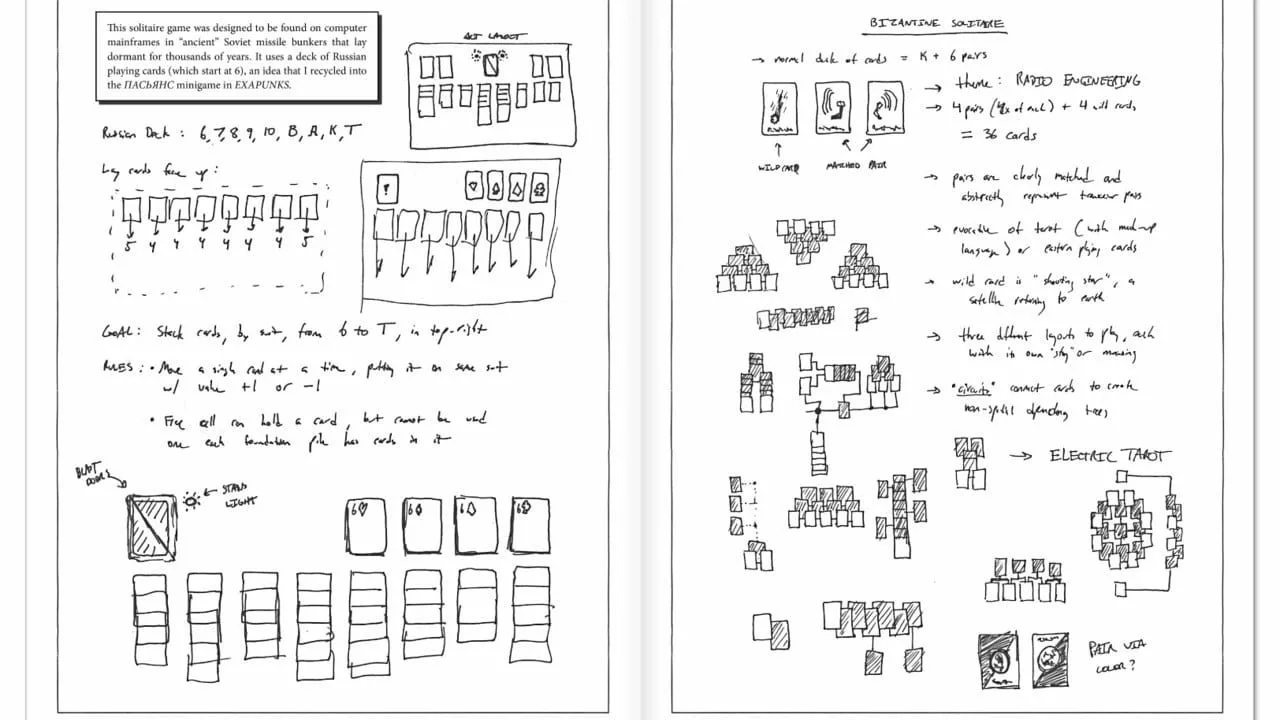 This solitaire game was designed to be found on computer
mainframes in “ancient” Soviet missile bunkers that lay
dormant for thousands of years. It uses a deck of Russian
playing cards (which start at 6), an idea that I recycled into
the ПАСЬЯНС minigame in EXAPUNKS.
ALT LAYOUT
Russian Deck : 6, 7, 8, 9, 10, В, Д, К, Т
Lay cards face up :
5 4 4 4 4 4 4 5
GOAL : Stack cards, by suit, from 6 to T, in top-right
RULES : • Move a single card at a time, putting it on same suit
w/ value +1 or -1
• Free cell can hold a card, but cannot be used
once each foundation pile has cards in it
BLAST
DOORS
STATUS
LIGHT
6 6 6 6
BIZANTINE SOLITAIRE
→ normal deck of cards = K + 6 pairs
→ theme : RADIO ENGINEERING
→ 4 pairs (4x of each) + 4 wild cards
= 36 cards
WILDCARD
MATCHED PAIR
→ pairs are clearly matched and
abstractly represent transceiver pairs
→ evocative of tarot (with made-up
language) or eastern playing cards
→ wild card is "shooting star", a
satellite returning to earth
→ three different layouts to play, each
with its own "story" or meaning
→ "circuits" connect cards to create
non-spatial depending trees
→ ELECTRIC TAROT
PAIR VIA
COLOR?